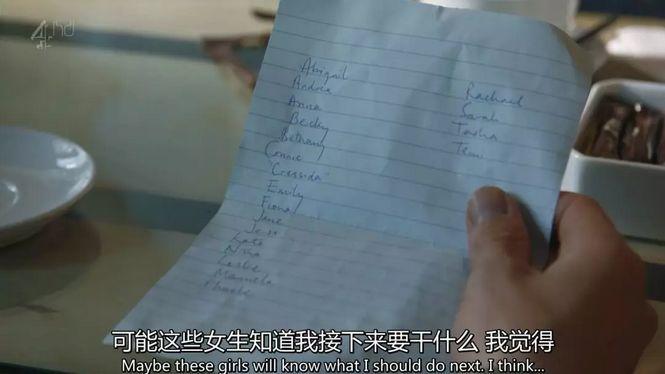 4 hd
Abigail
Andrea
Anna
Becky
Bethany
Connie
Cressida
Emily
Fiona
Jane
Jess
Kate
Nina
Leslie
Manuela
Phoebe
Rachael
Sarah
Tasha
可能这些女生知道我接下来要干什么 我觉得
Maybe these girls will know what I should do next. I think...